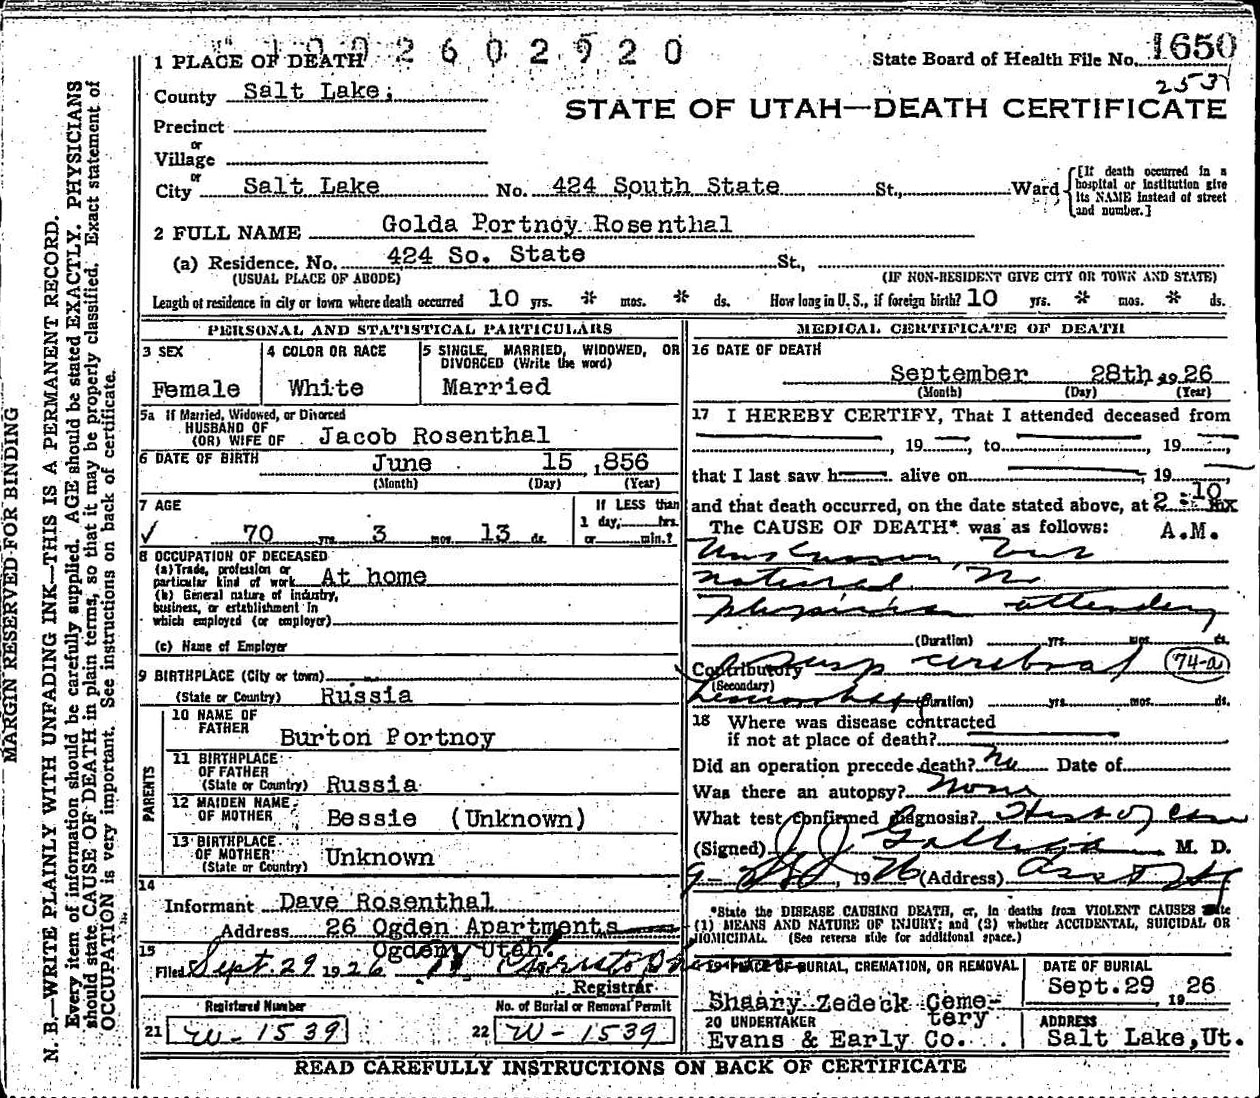 1002602920
1 PLACE OF DEATH
State Board of Health File No. 1650
County Salt Lake;
2531
STATE OF UTAH—DEATH CERTIFICATE
Precinct
or
Village
or
City Salt Lake No. 424 South State St., Ward
[If death occurred in a hospital or institution give its NAME instead of street and number.]
2 FULL NAME Golda Portnoy Rosenthal
(a) Residence, No. 424 So. State St,
(USUAL PLACE OF ABODE) (IF NON-RESIDENT GIVE CITY OR TOWN AND STATE)
Length of residence in city or town where death occurred 10 yrs. * mos. * ds. How long in U. S., if foreign birth? 10 yrs. * mos. * ds.
PERSONAL AND STATISTICAL PARTICULARS
3 SEX
Female
4 COLOR OR RACE
White
5 SINGLE, MARRIED, WIDOWED, OR DIVORCED (Write the word)
Married
5a If Married, Widowed, or Divorced
HUSBAND OF
(OR) WIFE OF Jacob Rosenthal
6 DATE OF BIRTH June 15 ,856
(Month) (Day) (Year)
7 AGE
If LESS than
1 day, hrs.
or min.?
✓ 70 yrs. 3 mos. 13 ds.
8 OCCUPATION OF DECEASED
(a) Trade, profession or
particular kind of work At home
(b) General nature of industry,
business, or establishment in
which employed (or employer)
(c) Name of Employer
9 BIRTHPLACE (City or town)
(State or Country) Russia
PARENTS
10 NAME OF
FATHER
Burton Portnoy
11 BIRTHPLACE
OF FATHER
(State or Country) Russia
12 MAIDEN NAME
OF MOTHER Bessie (Unknown)
13 BIRTHPLACE
OF MOTHER
(State or Country) Unknown
14
Informant Dave Rosenthal
Address 26 Ogden Apartments
Ogden, Utah.
15
Filed Sept. 29 1926
Registrar
Registered Number
21 W-1539
No. of Burial or Removal Permit
22 W-1539
MEDICAL CERTIFICATE OF DEATH
16 DATE OF DEATH
September 28th, 1926
(Month) (Day) (Year)
17 I HEREBY CERTIFY, That I attended deceased from
, 19 , to , 19 ,
that I last saw h alive on , 19 ,
and that death occurred, on the date stated above, at 2:10
The CAUSE OF DEATH* was as follows: A.M.
Unknown, but
natural No
physician attending
(Duration) yrs. mos. ds.
Contributory Susp cerebral 74-a
(Secondary)
hemorrhage (Duration) yrs. mos. ds.
18 Where was disease contracted
if not at place of death?
Did an operation precede death? no Date of
Was there an autopsy? None
What test confirmed diagnosis? Hist of case
(Signed) M. D.
9- 1926 (Address)
*State the DISEASE CAUSING DEATH, or, in deaths from VIOLENT CAUSES state
(1) MEANS AND NATURE OF INJURY; and (2) whether ACCIDENTAL, SUICIDAL OR
HOMICIDAL. (See reverse side for additional space.)
19 PLACE OF BURIAL, CREMATION, OR REMOVAL
Shaary Zedeck Ceme-
tery
DATE OF BURIAL
Sept.29 , 1926
20 UNDERTAKER
Evans & Early Co.
ADDRESS
Salt Lake,Ut.
READ CAREFULLY INSTRUCTIONS ON BACK OF CERTIFICATE
MARGIN RESERVED FOR BINDING
N. B.—WRITE PLAINLY WITH UNFADING INK—THIS IS A PERMANENT RECORD.
Every item of information should be carefully supplied. AGE should be stated EXACTLY. PHYSICIANS
should state CAUSE OF DEATH in plain terms, so that it may be properly classified. Exact statement of
OCCUPATION is very important. See instructions on back of certificate.